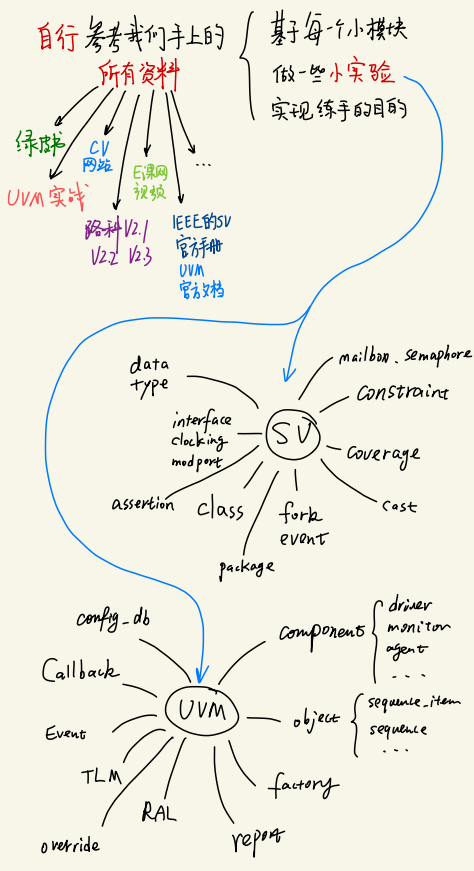 自行参考我们手上的
所有资料
基于每一个小模块
做一些小实验
实现练手的目的
绿皮书
UVM 实战
CV
网站
路科V2.1
V2.2 V2.3
E课网
视频
IEEE的SV
官方手册
UVM
官方文档
...
SV
data
type
interface
clocking
modport
assertion
class
package
fork
event
cast
coverage
constraint
mailbox、semaphore
UVM
config_db
Callback
Event
TLM
override
RAL
report
factory
object
sequence_item
sequence
...
component
driver
monitor
agent
...